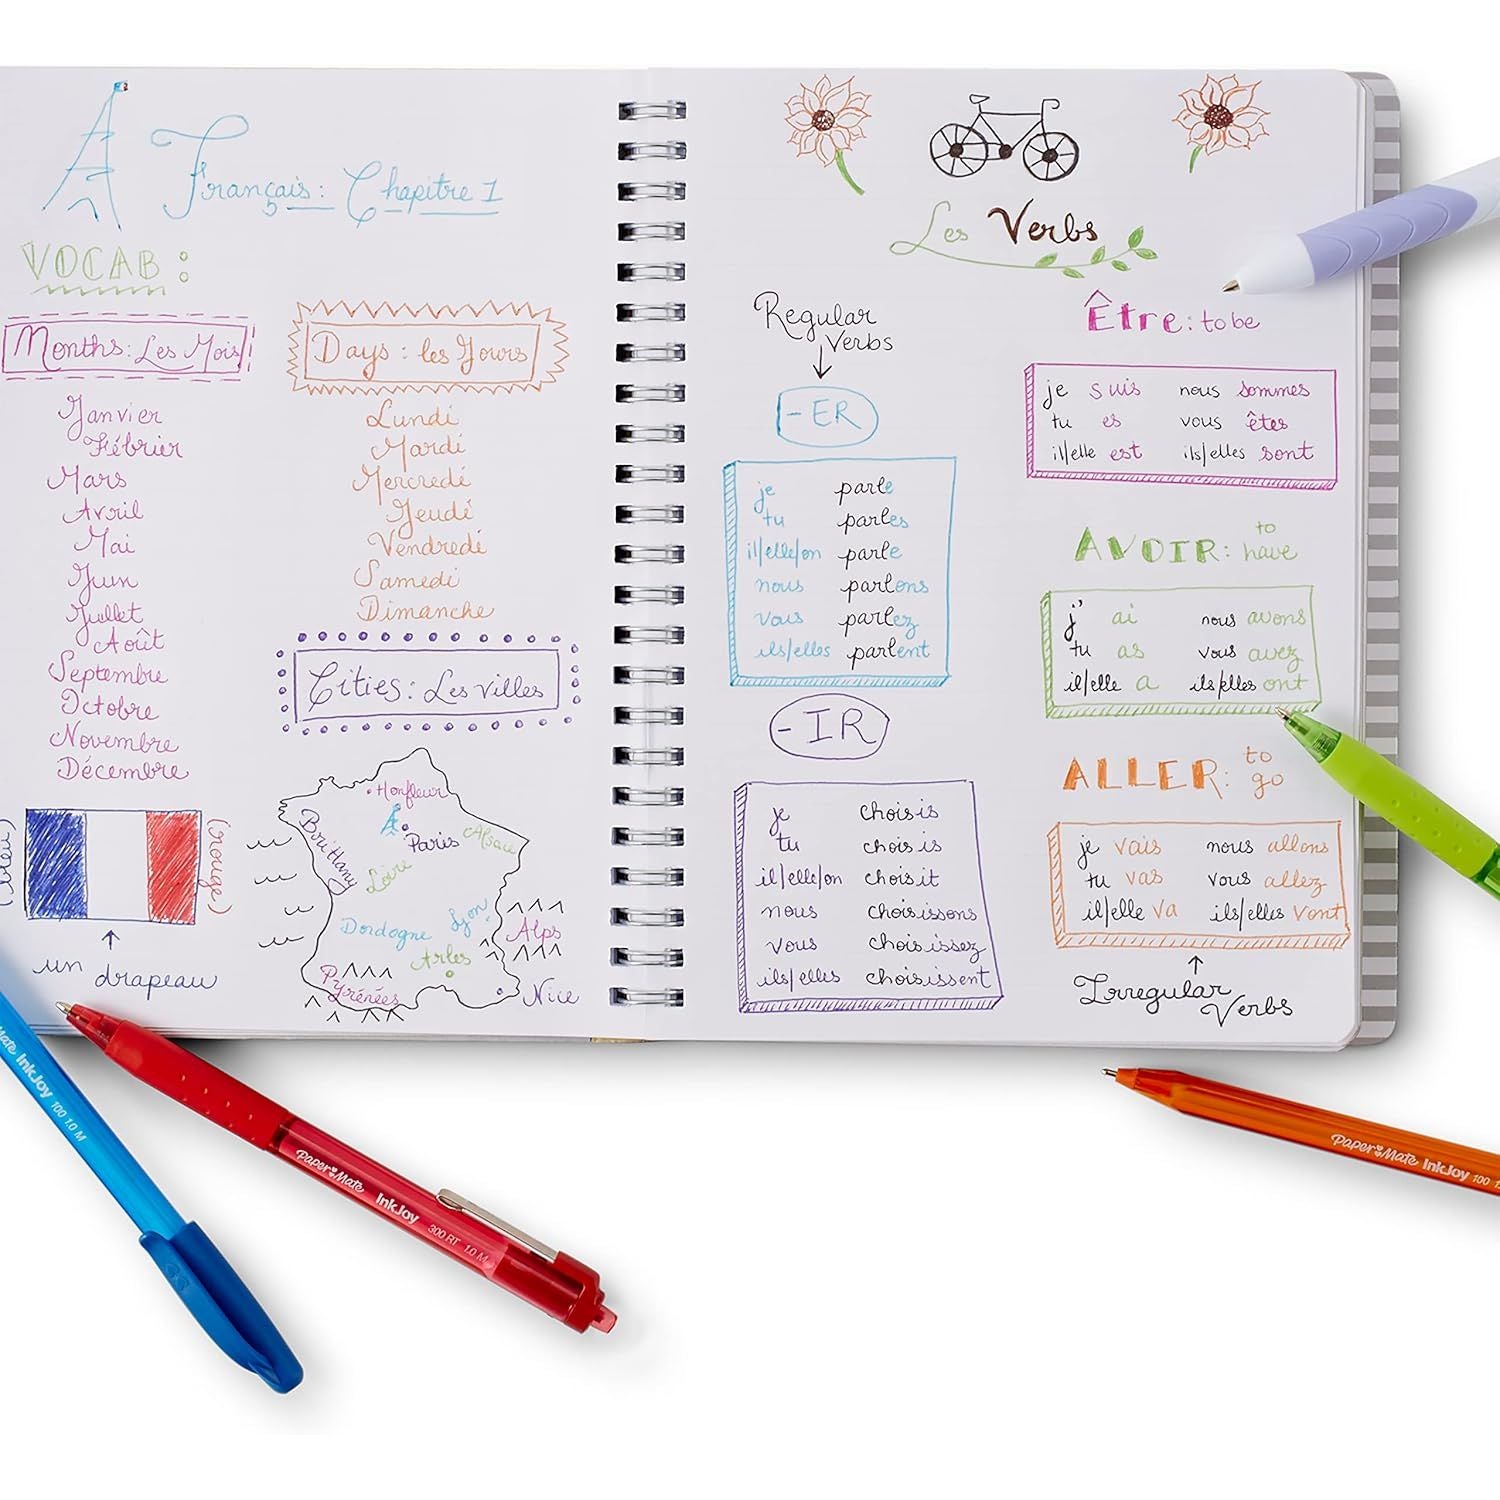 Français: Chapitre 1
VOCAB:
Months: Les Mois
Janvier
Fébrier
Mars
Avril
Mai
Juin
Juillet
Août
Septembre
Octobre
Novembre
Décembre
Days: les Jours
Lundi
Mardi
Mercredi
Jeudi
Vendredi
Samedi
Dimanche
Cities: Les villes
Honfleur
Paris
Alsace
Brittany
Loire
Dordogne
Lyon
Alps
Arles
Pyrénées
Nice
(bleu)
(rouge)
un drapeau
Les Verbs
Regular
Verbs
-ER
je parle
tu parles
il/elle/on parle
nous parlons
vous parlez
ils/elles parlent
-IR
je choisis
tu choisis
il/elle/on choisit
nous choisissons
vous choisissez
ils/elles choisissent
Être: to be
je suis nous sommes
tu es vous êtes
il/elle est ils/elles sont
AVOIR: to have
j' ai nous avons
tu as vous avez
il/elle a ils/elles ont
ALLER: to go
je vais nous allons
tu vas vous allez
il/elle va ils/elles vont
Irregular
Verbs
Mate InkJoy 100 1.0 M
Paper Mate InkJoy 300 RT 1.0 M
Paper Mate InkJoy 100